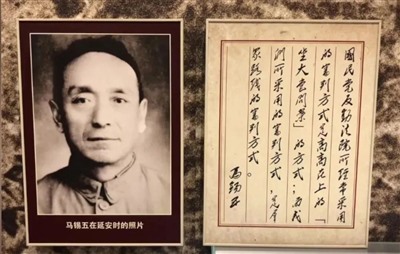 马锡五在延安时的照片
國民党反動法院所经常采用
的審判方式是高高在上的「
坐大堂問案」的方式；而我
們所采用的審判方式，是羣
众路线的審判方式。
馬錫五